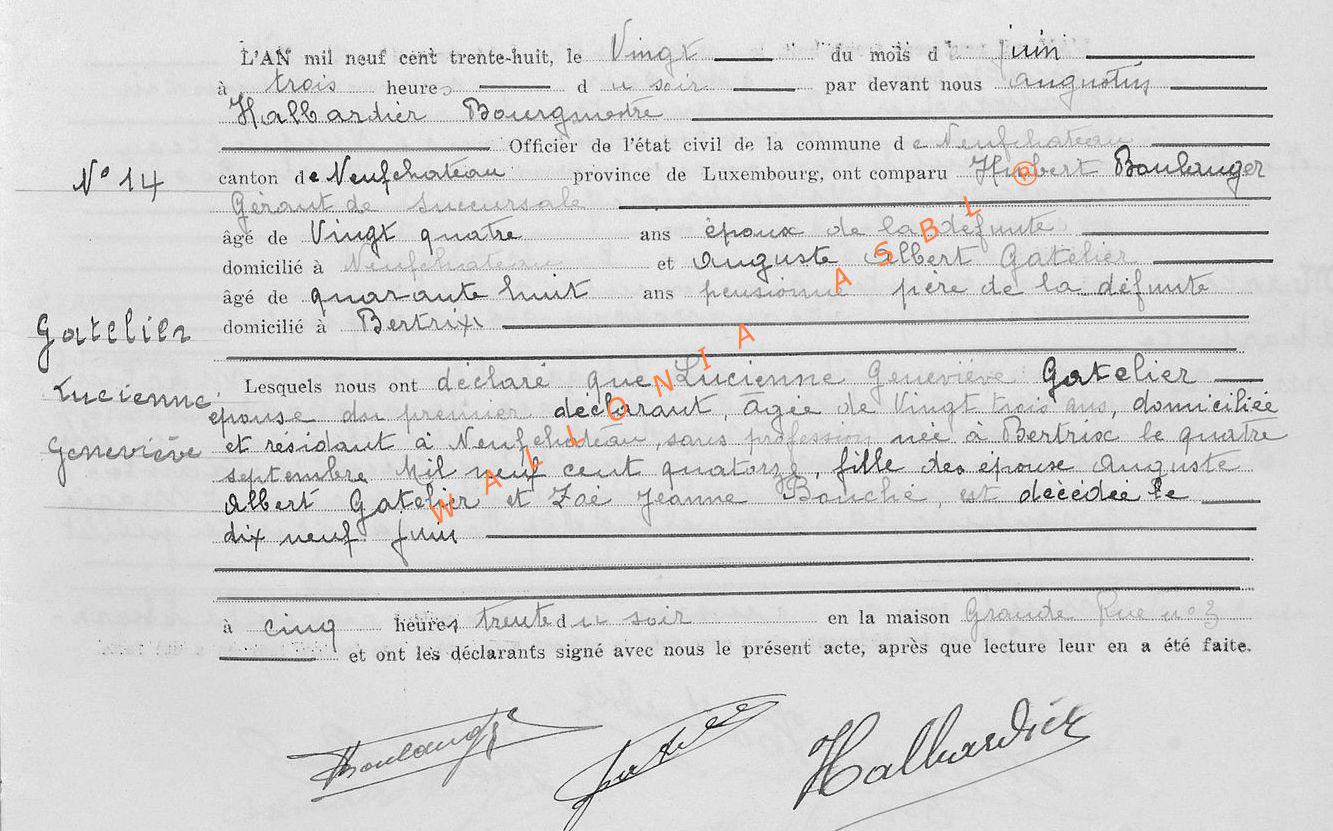 L'AN mil neuf cent trente-huit, le Vingt du mois de juin
à trois heures du soir par devant nous Augustin
Halbardier Bourgmestre
Officier de l'état civil de la commune de Neufchateau
N° 14
canton de Neufchateau province de Luxembourg, ont comparu Hubert Boulanger
Gérant de succursale
âgé de Vingt quatre ans époux de la défunte
domicilié à Neufchateau et Auguste Albert Gatelier
âgé de quarante huit ans pensionné père de la défunte
domicilié à Bertrix
Gatelier
Lucienne
Geneviève
Lesquels nous ont déclaré que Lucienne Geneviève Gatelier
épouse du premier déclarant, âgée de Vingt trois ans, domiciliée
et résidant à Neufchateau, sans profession née à Bertrix le quatre
septembre Mil neuf cent quatorze, fille des époux Auguste
Albert Gatelier et Zoé Jeanne Bouché, est décédée le
dix neuf juin
à cinq heures trente du soir en la maison Grande Rue n° 3
et ont les déclarants signé avec nous le présent acte, après que lecture leur en a été faite.
Boulanger Halbardier
WALLONIA ASBL ®